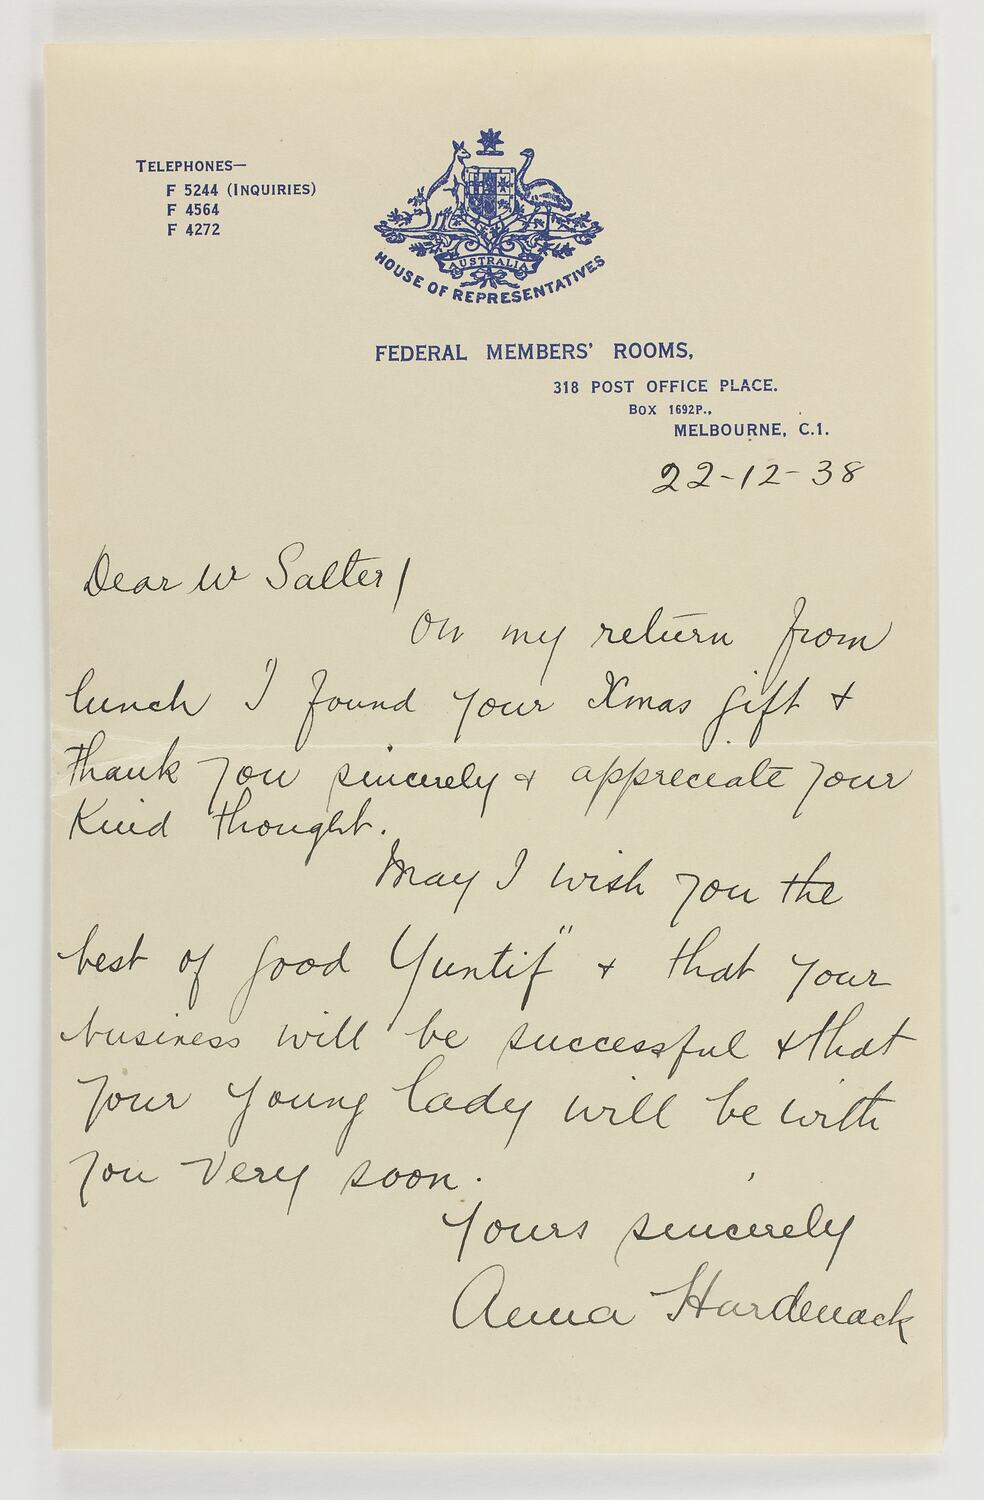 TELEPHONES—
F 5244 (INQUIRIES)
F 4564
F 4272
AUSTRALIA
HOUSE OF REPRESENTATIVES
FEDERAL MEMBERS' ROOMS,
318 POST OFFICE PLACE.
BOX 1692P.,
MELBOURNE, C.1.
22-12-38
Dear Mr Salter/
On my return from
lunch I found your Xmas gift &
thank you sincerely & appreciate your
kind thought.
May I wish you the
best of good Yuntif" & that your
business will be successful & that
your young lady will be with
you very soon.
Yours sincerely
Anna Hardenack